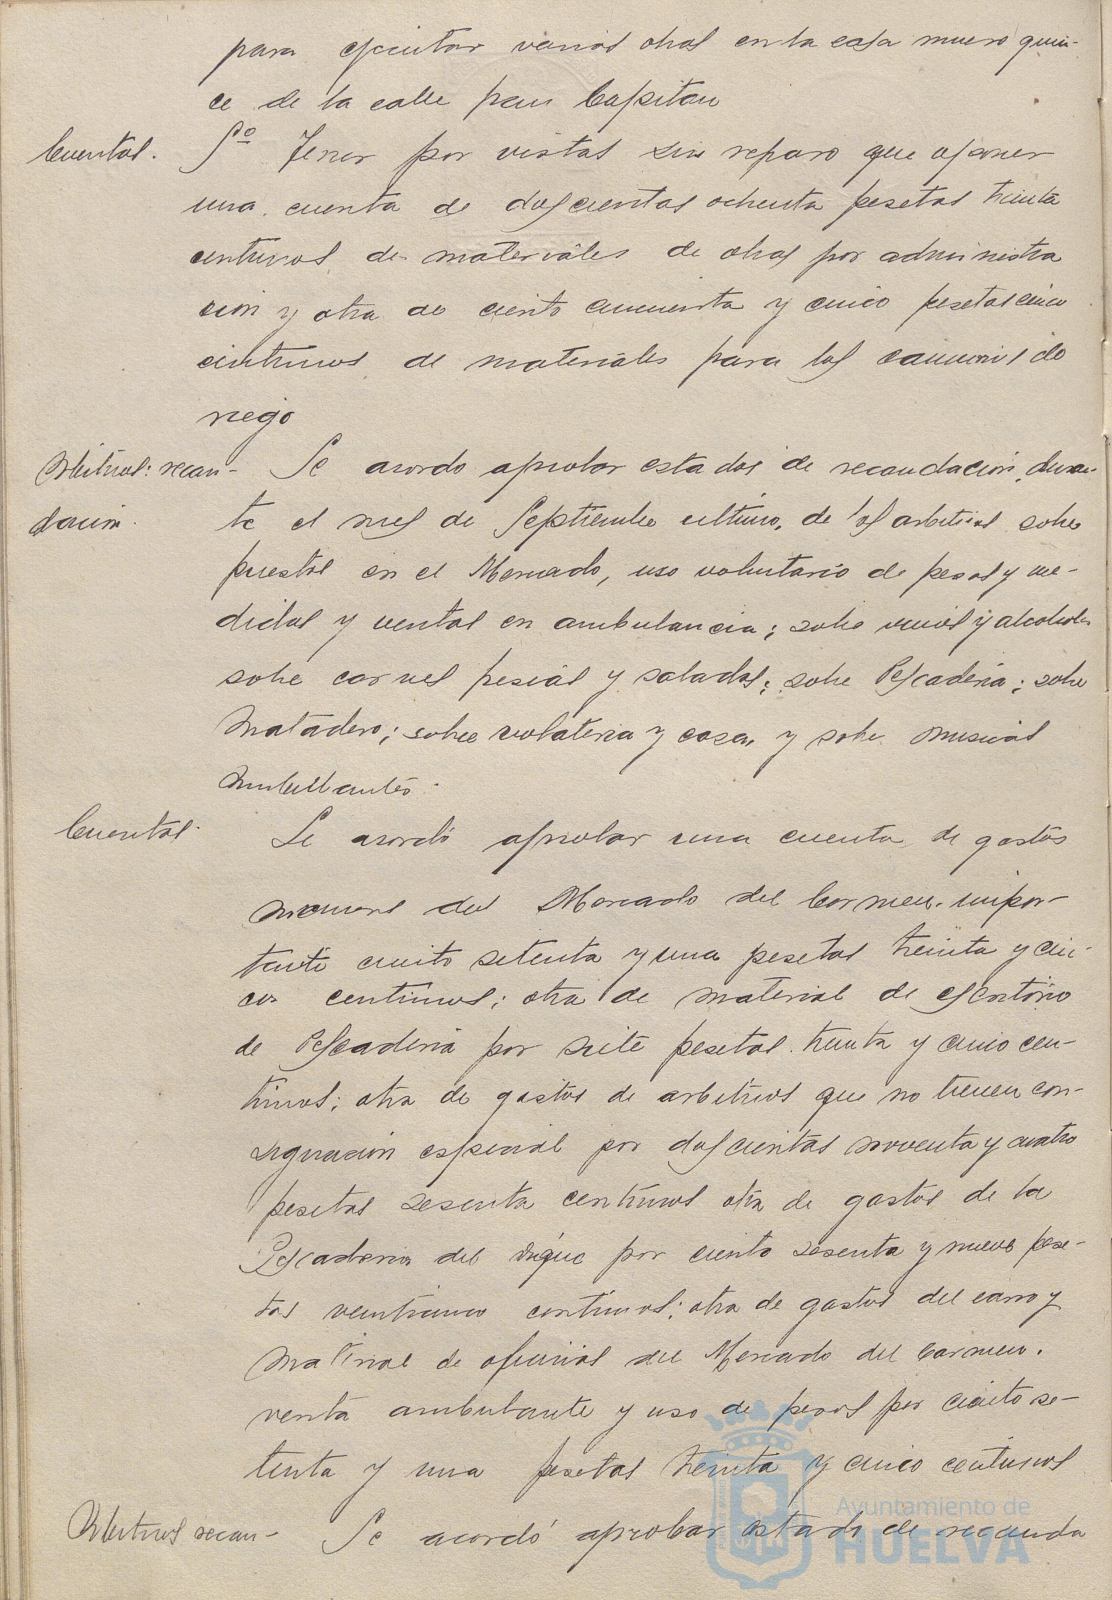 para ejecutar varias obras en la casa numero quin-
ce de la calle Capitan
Cuentas. 5º Tener por vistas sin reparo que oponer
una cuenta de doscientas ochenta pesetas treinta
centimos de materiales de obras por administra
cion y otra de ciento cincuenta y cinco pesetas cinco
centimos de materiales para los caminos de
riego
Arbitrios: recau- Se acordo aprobar estados de recaudacion, duran-
dacion. te el mes de Septiembre ultimo, de los arbitrios sobre
puestos en el Mercado, uso voluntario de pesas y me-
didas y ventas en ambulancia; sobre vinos y alcoholes
sobre carnes frescas y saladas; sobre Pescaderia; sobre
Matadero; sobre volateria y caza, y sobre musicas
ambulantes.
Cuentas. Se acordó aprobar una cuenta de gastos
menores del Mercado del Carmen, impor-
tante ciento setenta y una pesetas treinta y cin-
co centimos; otra de material de escritorio
de Pescaderia por siete pesetas treinta y cinco cen-
timos; otra de gastos de arbitrios que no tienen con-
signacion especial por doscientas noventa y cuatro
pesetas sesenta centimos otra de gastos de la
Pescaderia del dique por ciento sesenta y nueve pese-
tas veinticinco centimos; otra de gastos del carro y
material de oficinas del Mercado del Carmen,
venta ambulante y uso de pesas por ciento se-
tenta y una pesetas treinta y cinco centimos
Arbitrios recau- Se acordó aprobar estado de recauda
Ayuntamiento de
HUELVA